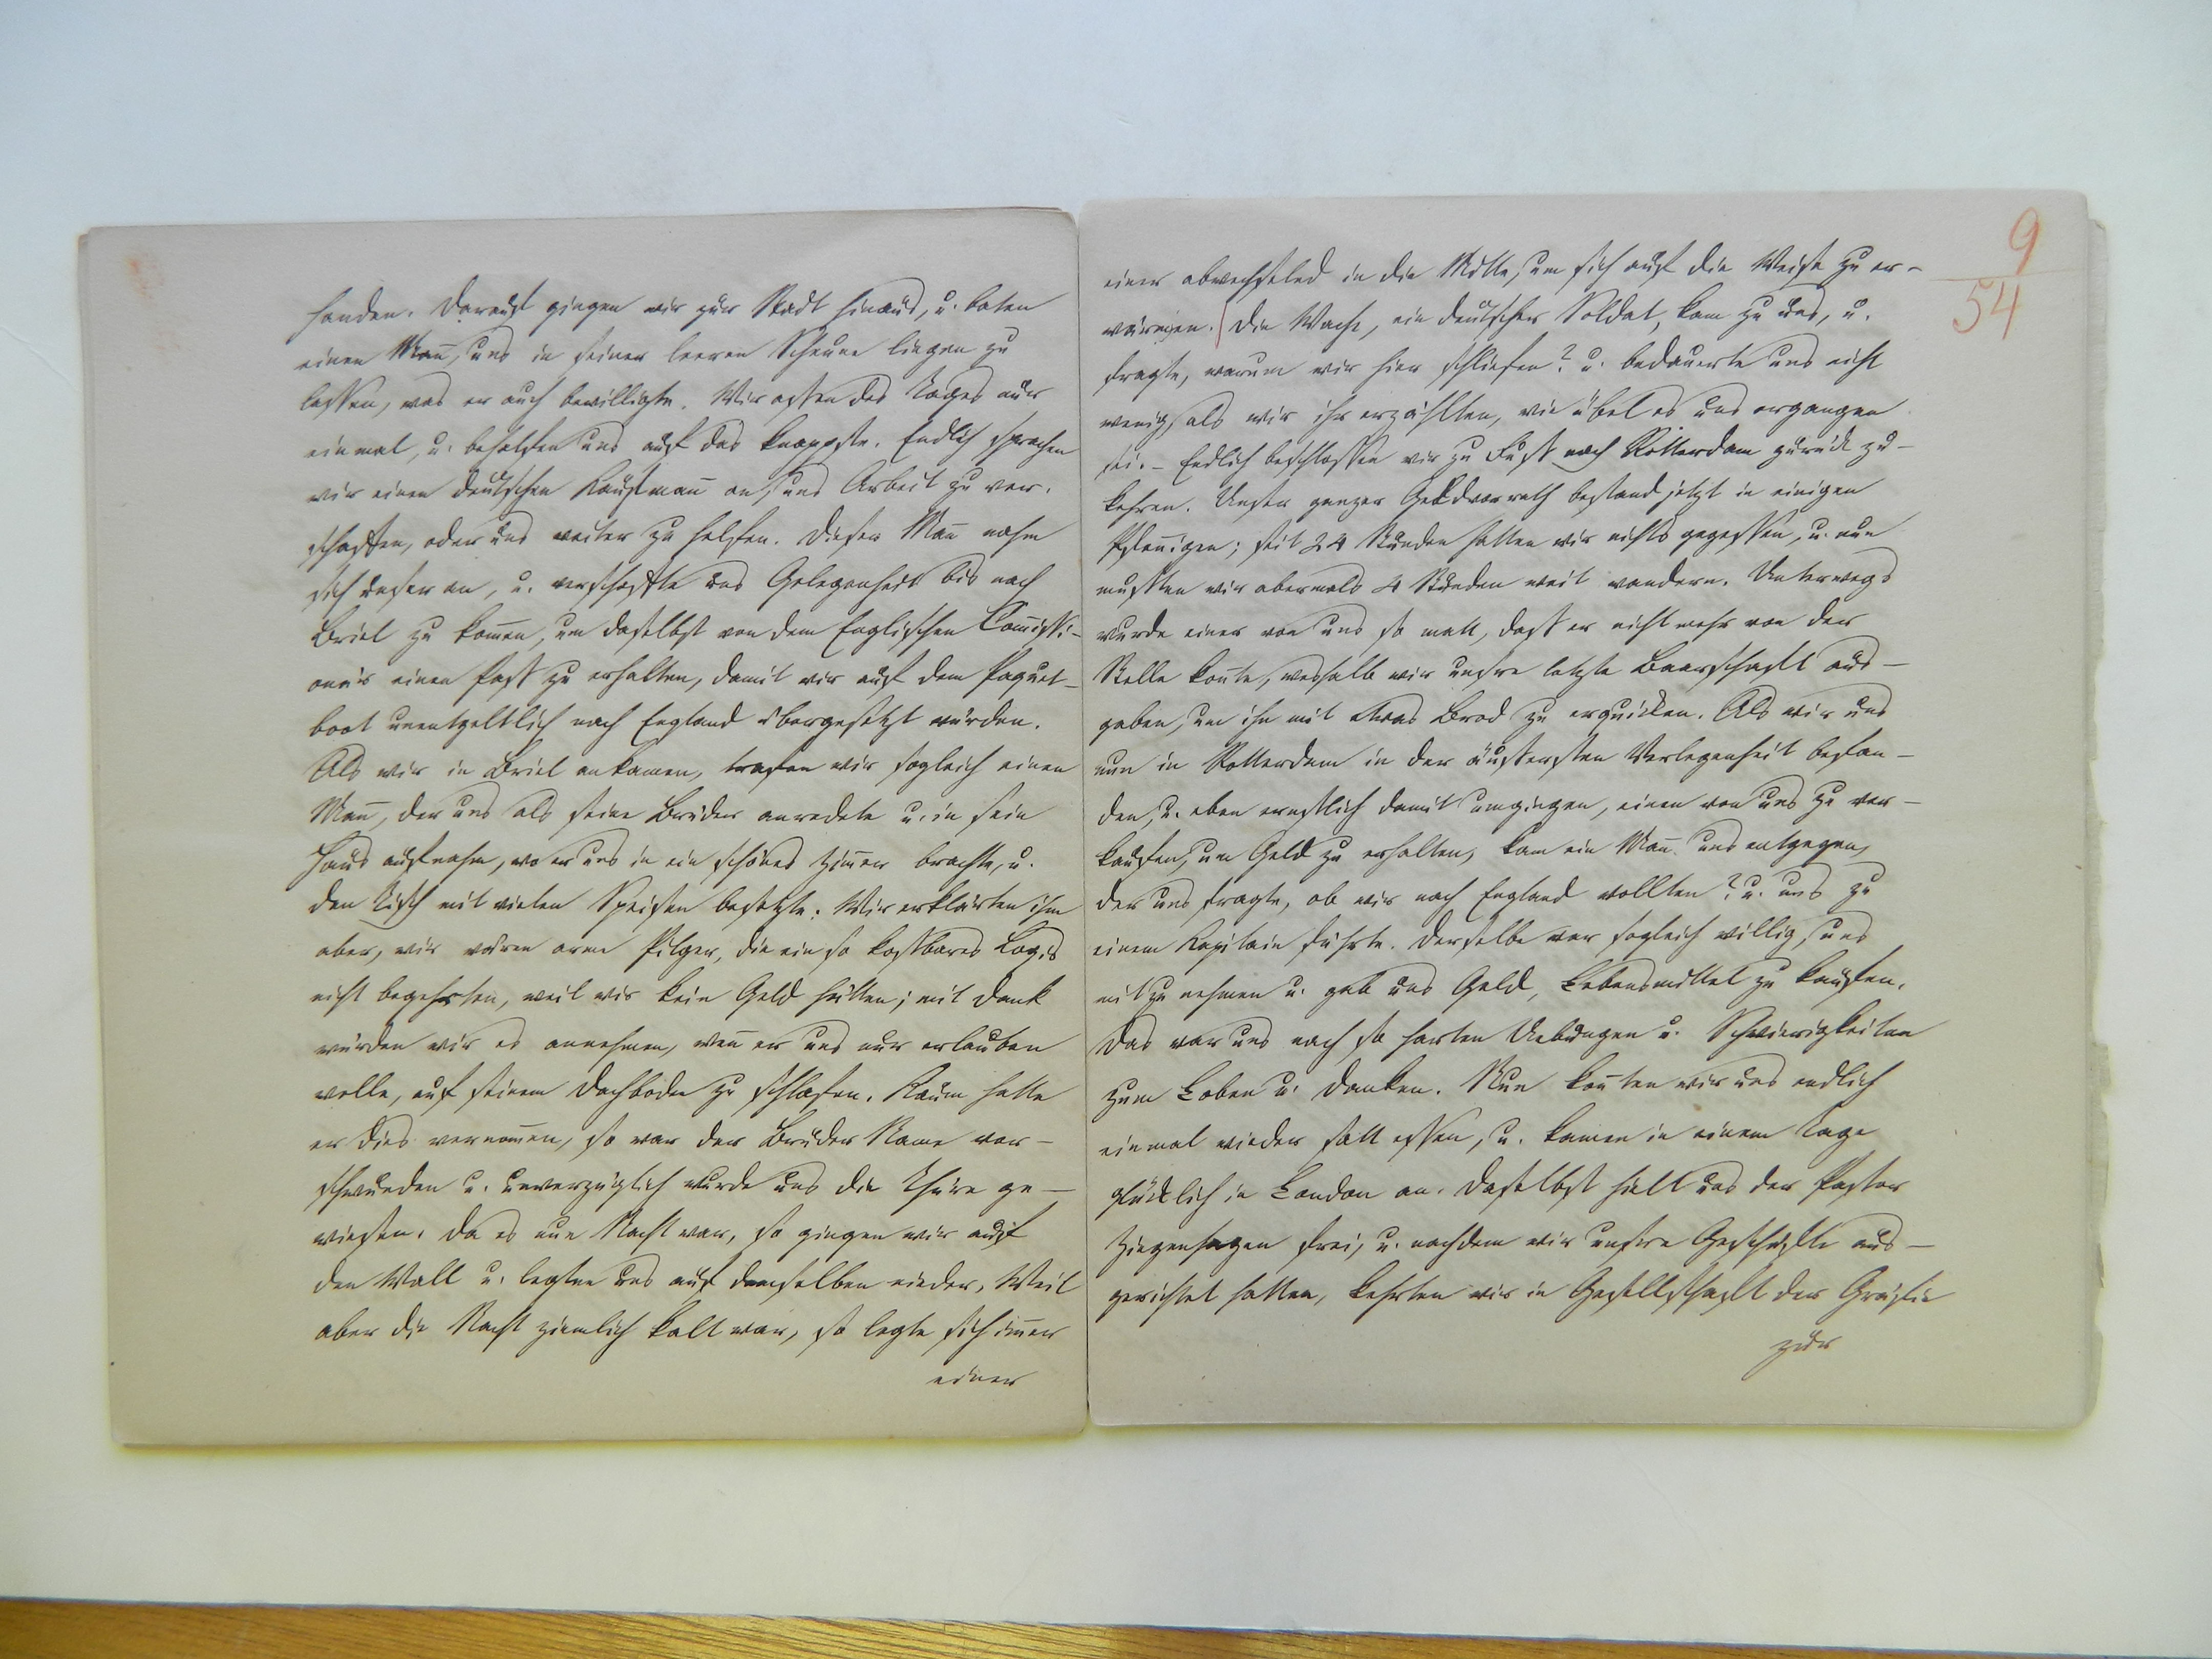 fanden. Darauf gingen wir zur Stadt hinaus, u. baten
einen Mañ, uns in seiner leeren Scheune liegen zu
lassen, was er auch bewilligte. Wir assen des Tages nur
einmal, u. behalfen uns auf das knappste. Endlich sprachen
wir einen deutschen Kaufmañ an, uns Arbeit zu ver-
schaffen, oder uns weiter zu helfen. Dieser Mañ nahm
sich unser an, u. verschaffte uns Gelegenheit bis nach
Briel zu kom̃en, um daselbst von dem Englischen Com̃issi-
onair einen Pass zu erhalten, damit wir auf dem Paquet-
boot unentgeltlich nach England übergesetzt würden.
Als wir in Briel ankamen, trafen wir sogleich einen
Mañ, der uns als seine Brüder anredete u. in sein
Haus aufnahm, wo er uns in ein schönes Zim̃er brachte, u.
den Tisch mit vielen Speisen besetzte. Wir erklärten ihm
aber, wir wären arme Pilger, die ein so kostbares Logis
nicht begehrten, weil wir kein Geld hätten; mit Dank
würden wir es annehmen, weñ er uns nur erlauben
wolle, auf seinem Dachboden zu schlafen. Kaum hatte
er dies vernom̃en, so war der Bruder Name ver-
schwunden u. unverzüglich wurde uns die Thüre ge-
wiesen. Da es nun Nacht war, so gingen wir auf
den Wall u. legten uns auf demselben nieder. Weil
aber die Nacht ziemlich kalt war, so legte sich im̃er
einer
9
54
einer abwechselnd in die Mitte, um sich auf die Weise zu er-
wärmen. Die Wache, ein deutscher Soldat, kam zu uns, u.
fragte, warum wir hier schliefen? u. bedauerte uns nicht
wenig, als wir ihr erzählten, wie übel es uns ergangen
sei. - Endlich beschlossen wir zu Fuss nach Rotterdam zurück zu-
kehren. Unser ganzer Geldvorrath bestand jetzt in einigen
Pfeñigen; seit 24 Stunden hatten wir nichts gegessen, u. nun
mussten wir abermals 4 Stunden weit wandern. Unterwegs
wurde einer von uns so matt, dass er nicht mehr von der
Stelle koñte, weshalb wir unsre letzte Baarschaft aus-
gaben, um ihn mit etwas Brod zu erquicken. Als wir uns
nun in Rotterdam in der äussersten Verlegenheit befan-
den, u. eben ernstlich damit umgingen, einen von uns zu ver-
kaufen, um Geld zu erhalten, kam ein Mañ uns entgegen,
der uns fragte, ob wir nach England wollten? u. uns zu
einem Kapitain führte. Derselbe war sogleich willig, uns
mit zu nehmen u. gab uns Geld, Lebensmittel zu kaufen.
Das war uns nach so harten Uebungen u. Schwierigkeiten
zum Loben u. Danken. Nun koñten wir uns endlich
einmal wieder satt essen, u. kamen in einem Tage
glücklich in London an. Daselbst hielt uns der Pastor
Ziegenhagen frei, u. nachdem wir unsere Geschäfte aus-
gerichtet hatten, kehrten wir in Gesellschaft der Gräfin
zur